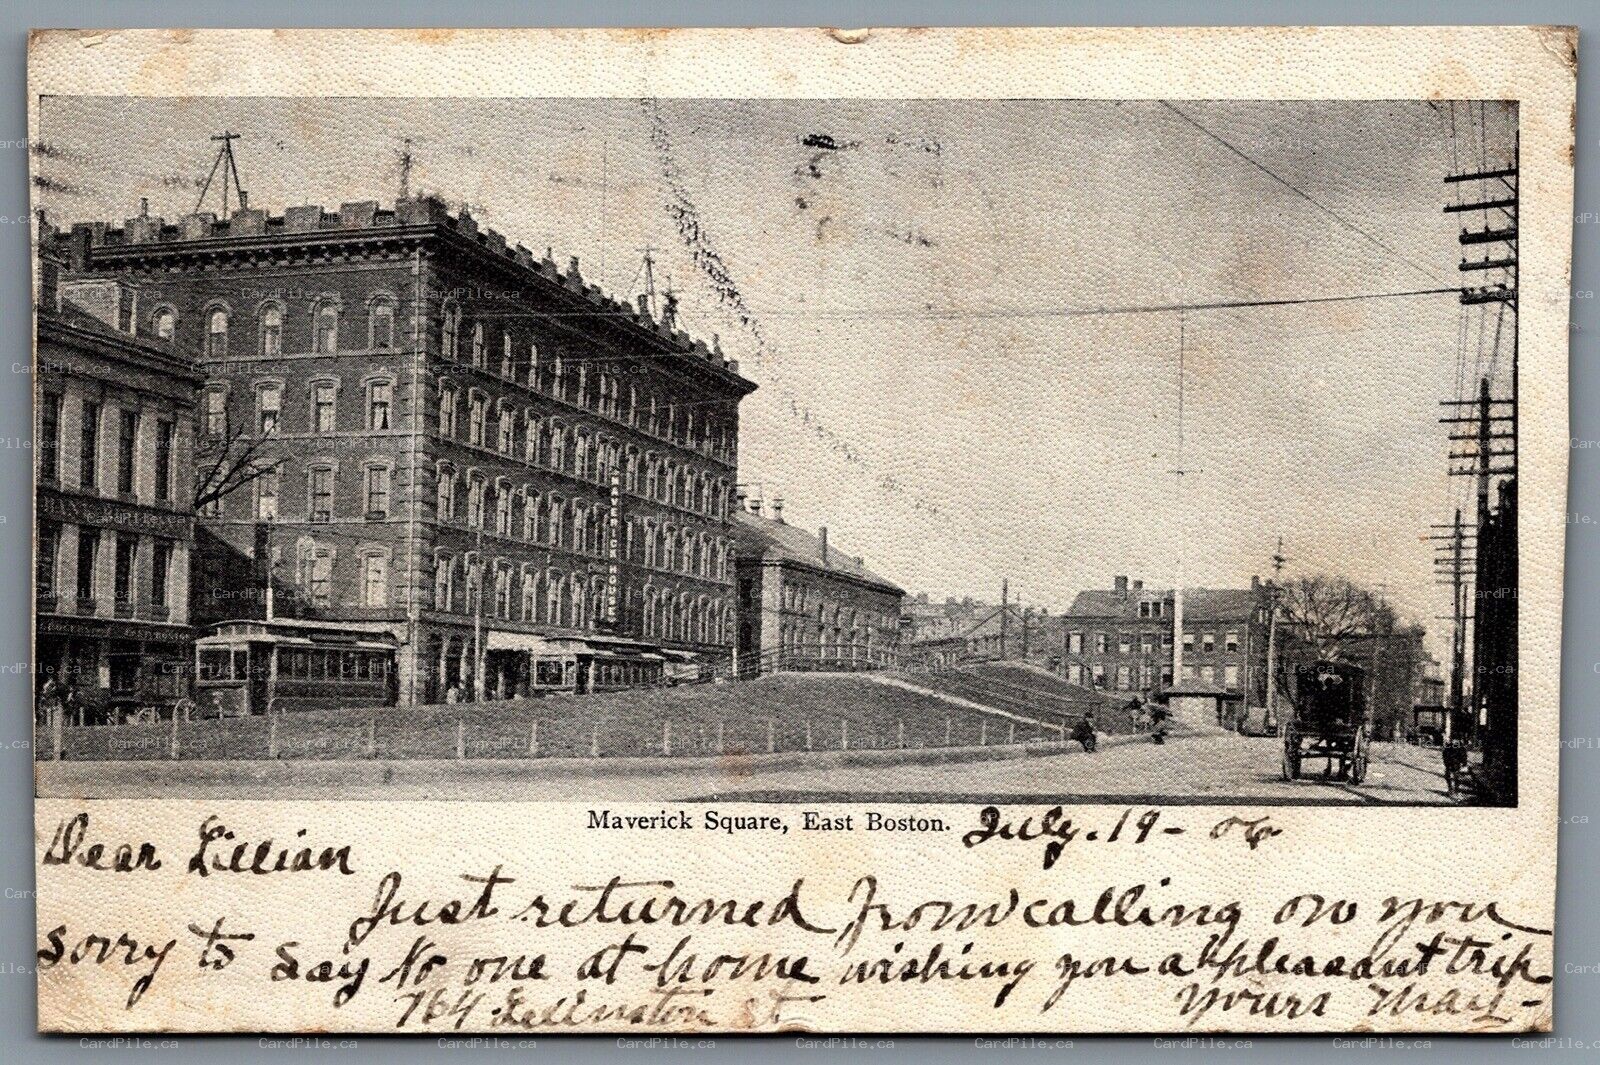 MAVERICK HOUSE
BANK
Maverick Square, East Boston.
July. 19 - 06
Dear Lillian
Just returned from calling on you
sorry to say No one at home wishing you a pleasant trip.
Yours May -
764 St
CardPile.ca